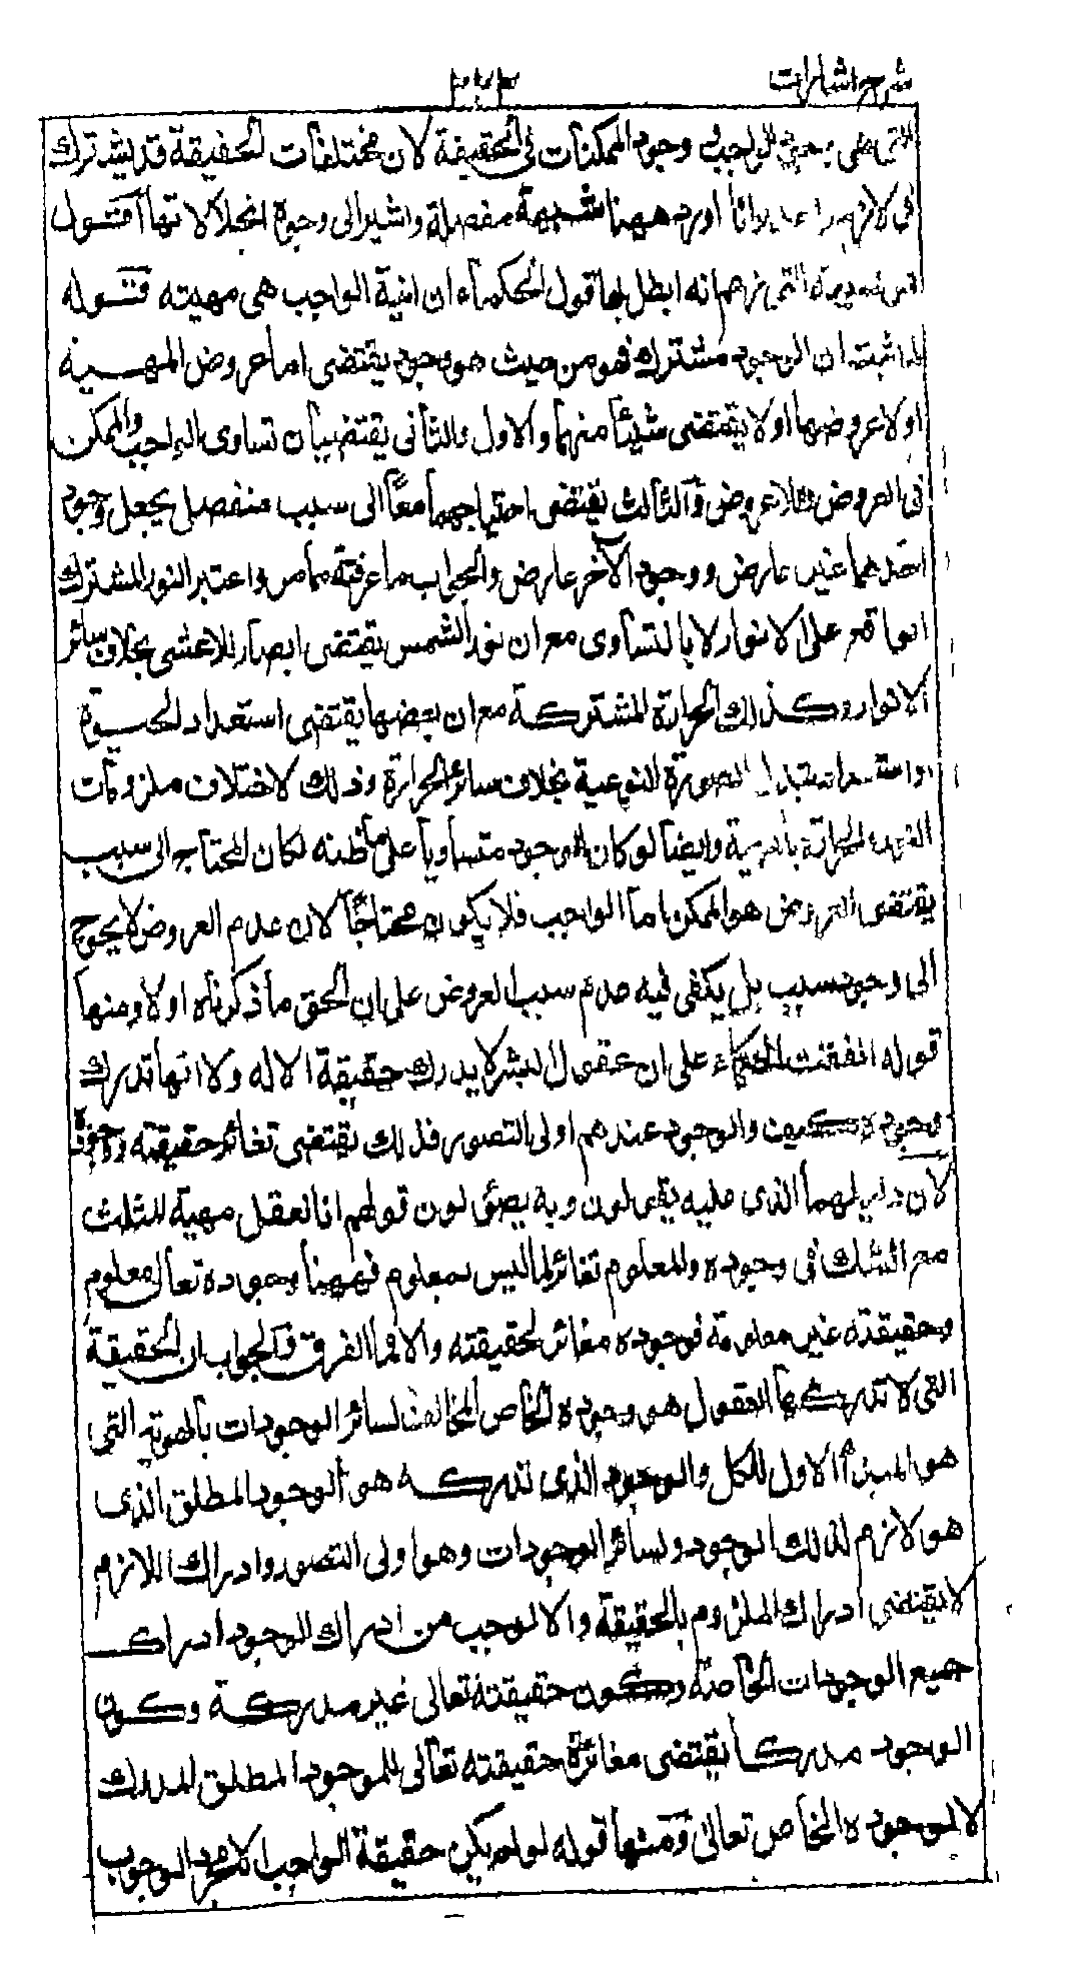 شرح اشارات
٢٢٣
التى هى وجود الواجب وجود الممكنات فى الحقيقة لان مختلفات الحقيقة قد يشترك
فى لازم واحد وانا اورد ههنا شبهه مفصلة واشير الى وجوه انحلالاتها اقول
التى زعم انه ابطل بها قول الحكماء ان انية الواجب هى مهيته قوله
لما ثبت ان الوجود مشترك فهو من حيث هو وجود يقتضى اما عروض المهية
او لا عروضها او لا يقتضى شيئا منهما والاول والثانى يقتضيان تساوى الواجب والممكن
فى العروض واللاعروض والثالث يقتضى احتياجهما معا الى سبب منفصل يجعل وجود
احدهما غير عارض ووجود الآخر عارض والجواب ما عرفته مما مر واعتبر النور المشترك
الواقع على الانوار لا بالتساوى مع ان نور الشمس يقتضى ابصار الاعشى بخلاف سائر
الانوار وكذلك الحرارة المشتركة مع ان بعضها يقتضى استعداد الحيوة
الصورة النوعية بخلاف سائر الحرارة وذلك لاختلاف ملزومات
النور والحرارة بالمهية وايضا لو كان الوجود متساويا على ما ظنه لكان المحتاج الى سبب
يقتضى العروض هو الممكن اما الواجب فلا يكون محتاجا لان عدم العروض لا يحوج
الى وجود سبب بل يكفى فيه عدم سبب العروض على ان الحق ما ذكرناه اولا ومنها
قوله اتفقت الحكماء على ان عقول البشر لا يدرك حقيقة الاله ولا انها تدرك
وجوده والوجود عندهم اولى التصور فذلك يقتضى تغائر حقيقته ووجوده
لان دليلهما الذى عليه يقولون وبه يصولون قولهم انا نعقل مهية المثلث
مع الشك فى وجوده والمعلوم تغائر لما ليس بمعلوم فههنا وجوده تعالى معلوم
وحقيقته غير معلومة فوجوده مغائر لحقيقته والا فما الفرق والجواب ان الحقيقة
التى لا تدركها العقول هو وجوده الخاص المخالف لسائر الوجودات بالهوية التى
هو المبدأ الاول للكل والوجود الذى تدركه هو الوجود المطلق الذى
هو لازم لذلك الوجود ولسائر الوجودات وهو اولى التصور وادراك اللازم
لا يقتضى ادراك الملزوم بالحقيقة والا لوجب من ادراك الوجود ادراك
جميع الوجودات الخاصة وكون حقيقته تعالى غير مدركة وكون
الوجود مدركا يقتضى مغائرة حقيقته تعالى للوجود المطلق المدرك
لا لوجوده الخاص تعالى ومنها قوله لو لم يكن حقيقة الواجب الا مجرد الوجوب